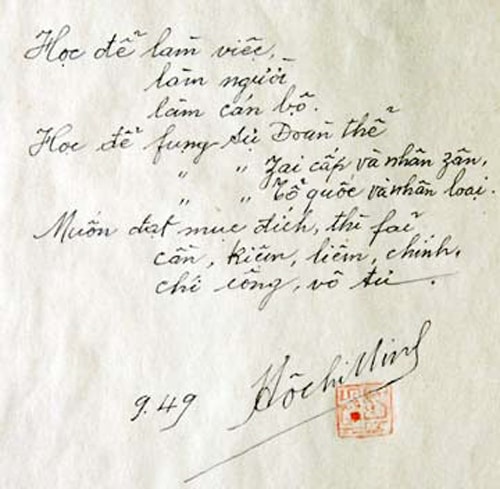 Học để làm việc,
làm người,
làm cán bộ.
Học để fụng sự Đoàn thể
" " zai cấp và nhân zân,
" " Tổ quốc và nhân loại.
Muốn đạt mục đích, thì fải
cần, kiệm, liêm, chính,
chí công, vô tư.
9.49 Hồ Chí Minh